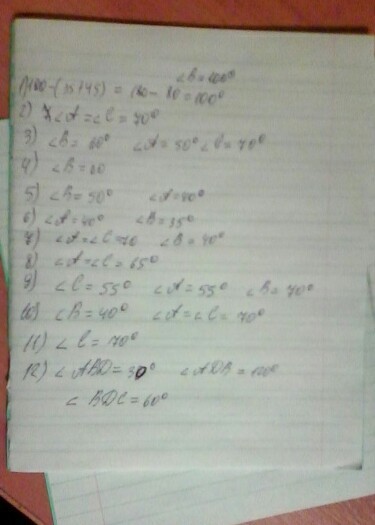 ∠B=100°
1) 180-(35+45) = 180-80=100°
2) ∠A=∠C=70°
3) ∠B=60° ∠A=50° ∠C=70°
4) ∠B=80
5) ∠B=50° ∠A=40°
6) ∠A=40° ∠B=35°
7) ∠A=∠C=70 ∠B=40°
8) ∠A=∠C=65°
9) ∠C=55° ∠A=55° ∠B=70°
10) ∠B=40° ∠A=∠C=70°
11) ∠C=70°
12) ∠ABD=30° ∠ADB=120°
∠BDC=60°